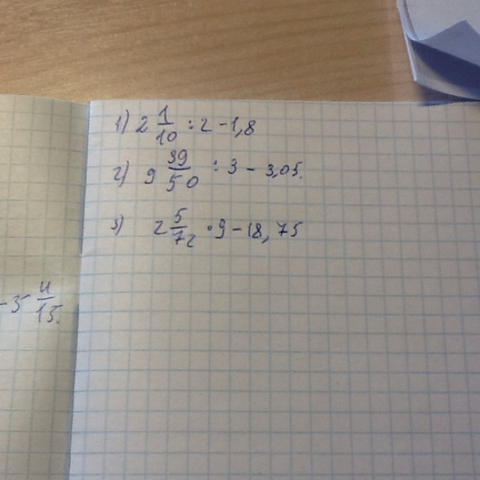 1) 2 1/10 : 2 - 1,8
2) 9 39/50 : 3 - 3,05.
3) 2 5/72 · 9 - 18,75
- 5 4/15.